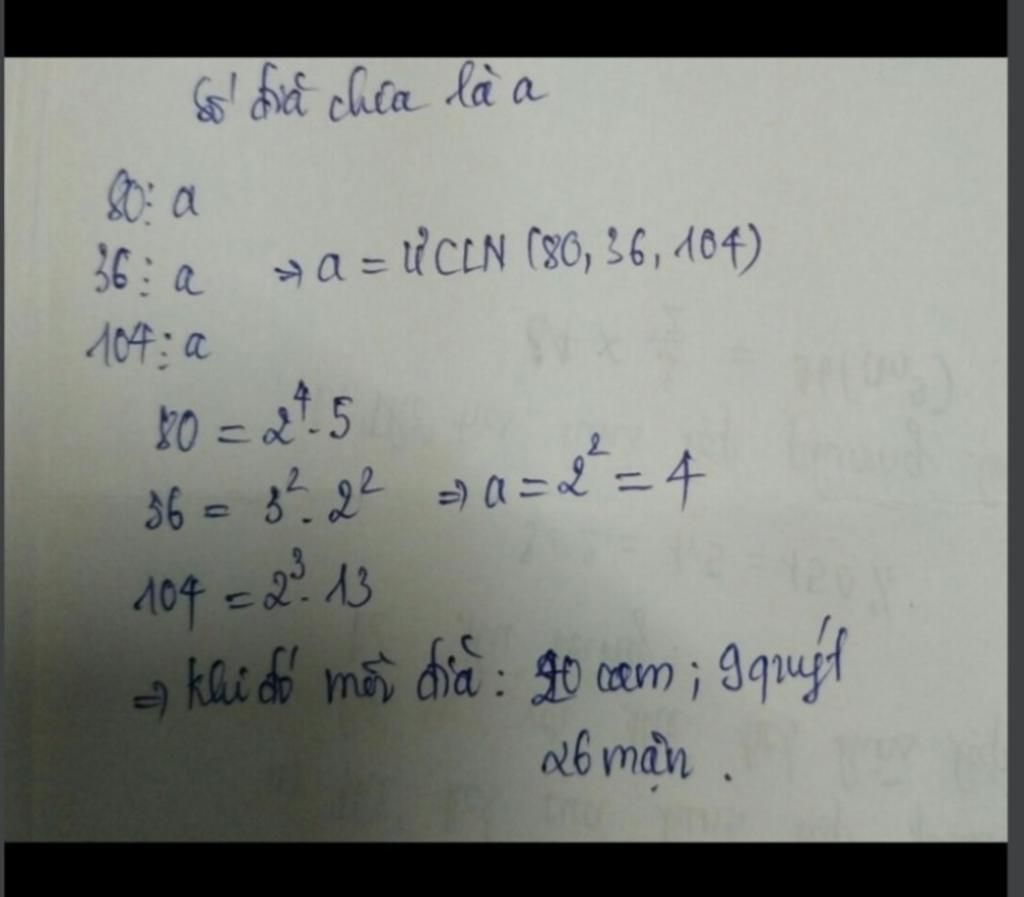 Số đĩa chia là a
80 ⋮ a
36 ⋮ a ⇒ a = ƯCLN (80, 36, 104)
104 ⋮ a
80 = 2⁴. 5
36 = 3². 2² ⇒ a = 2² = 4
104 = 2³. 13
⇒ Khi đó mỗi đĩa: 20 cam; 9 quýt
26 mận.